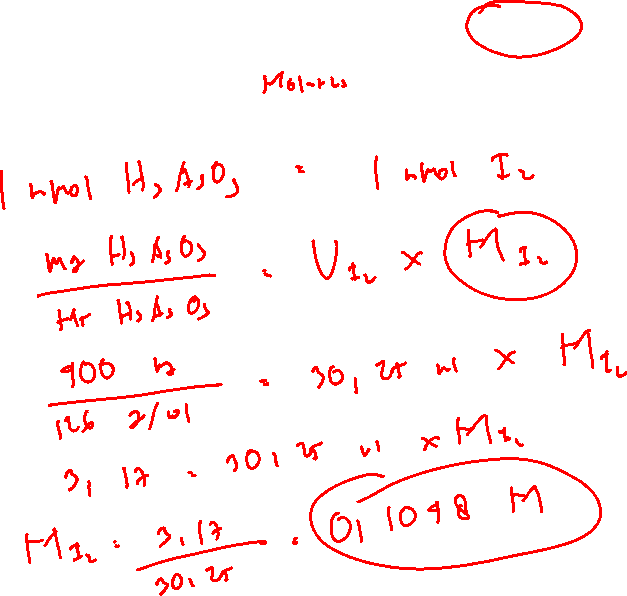 Molaritas
1 mmol H3AsO3 = 1 mmol I2
mg H3AsO3 / Mr H3AsO3 = V I2 × M I2
400 mg / 126 g/mol = 30,25 ml × M I2
3,17 = 30,25 ml × M I2
M I2 = 3,17 / 30,25 = 0,1048 M